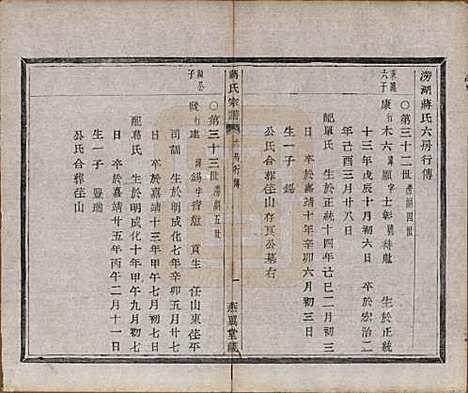 滂湖蔣氏六房行傳
○第三十二世 滂湖四世
素隱六子
康 行木六 諱顯 字士彰 號待航 生於正統
十三年戊辰十月初六日 卒於宏治二
年己酉三月廿八日
配單氏 生於正統十四年己巳二月初三
日 卒於嘉靖辛卯六月初三日
生一子 錫
公氏合葬住山存真公墓右
蔣氏宗譜 六房行傳 一 燕翼堂藏
○第三十三世 滂湖五世
顯公子
錫 諱錫 字 貢生 任山東茌平
司訓 生於明成化七年辛卯五月廿七
日 卒於嘉靖十三年甲午七月初七日
配聶氏 生於明成化十年甲午七月初七
日 卒於嘉靖廿五年丙午二月十一日
生一子 豐瑞
公氏合葬住山